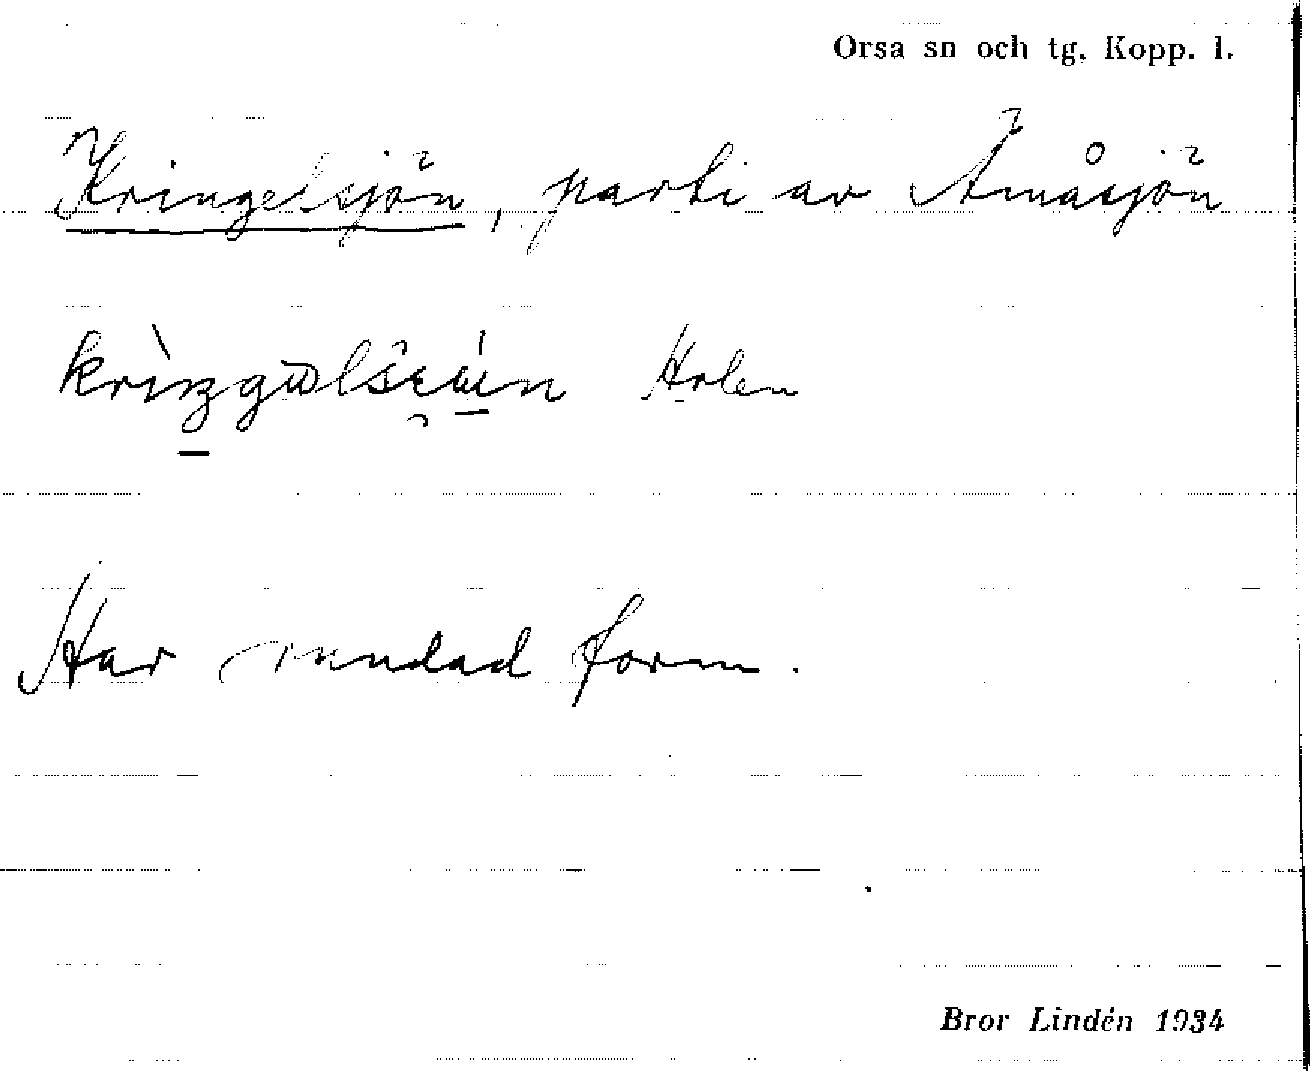 Orsa sn och tg. Kopp. l.
Kringelsjön, parti av Åmåsjön
Holen
Har rundad form.
Bror Lindén 1934